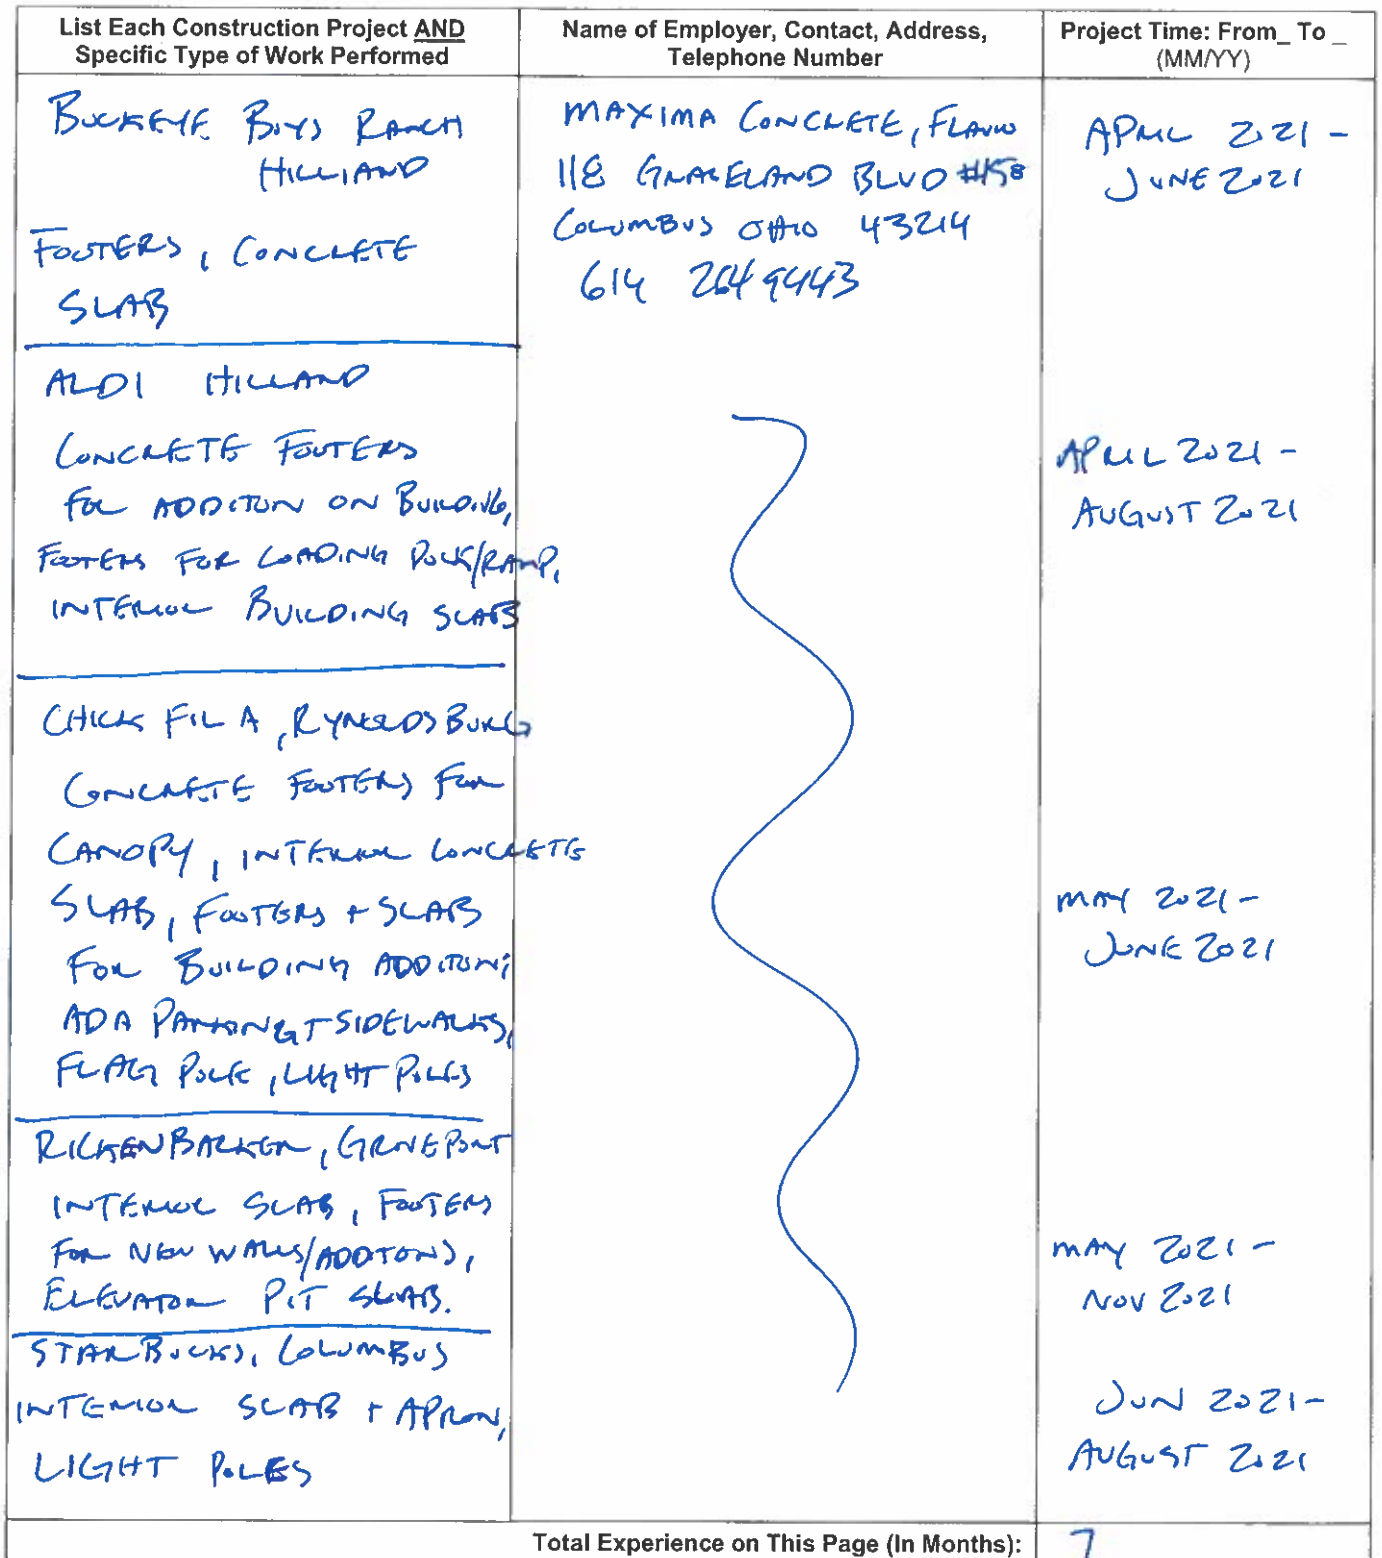 List Each Construction Project AND
Specific Type of Work Performed
Name of Employer, Contact, Address,
Telephone Number
Project Time: From_ To _
(MM/YY)
BUCKEYE BOYS RANCH
HILLIARD
FOOTERS, CONCRETE
SLAB
MAXIMA CONCRETE, FLAVIO
118 GRACELAND BLVD #158
COLUMBUS OHIO 43214
614 264 9443
APRIL 2021 -
JUNE 2021
ALDI HILLARD
CONCRETE FOOTERS
FOR ADDITION ON BUILDING,
FOOTERS FOR LOADING DOCK/RAMP,
INTERIOR BUILDING SLAB
APRIL 2021 -
AUGUST 2021
CHICK FIL A, RYNOLDSBURG
CONCRETE FOOTERS FOR
CANOPY, INTERIOR CONCRETE
SLAB, FOOTERS + SLAB
FOR BUILDING ADDITION,
ADA PARKING + SIDEWALKS,
FLAG POLE, LIGHT POLES
MAY 2021 -
JUNE 2021
RICKENBACKER, GROVEPORT
INTERIOR SLAB, FOOTERS
FOR NEW WALLS/ADDITONS,
ELEVATOR PIT SLAB.
MAY 2021 -
NOV 2021
STARBUCKS, COLUMBUS
INTERIOR SLAB + APRON,
LIGHT POLES
JUN 2021 -
AUGUST 2021
Total Experience on This Page (In Months):
7